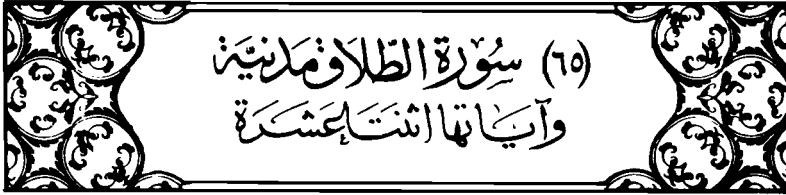 (٦٥) سُوْرَة الطّلَاق مَدَنيَّة
وَآيَاتها اثنتَا عَشَرَة